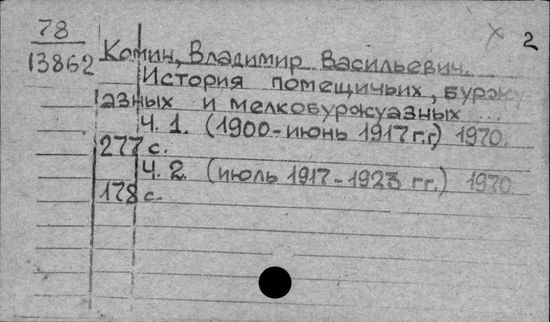 78
13862
2
Комин, Владимир Васильевич.
История помещичьих, буржу
азных и мелкобуржуазных ...
Ч. 1. (1900-июнь 1917 г.г.) 1970.
277 с.
Ч. 2. (июль 1917-1923 гг.) 1970.
178 с.